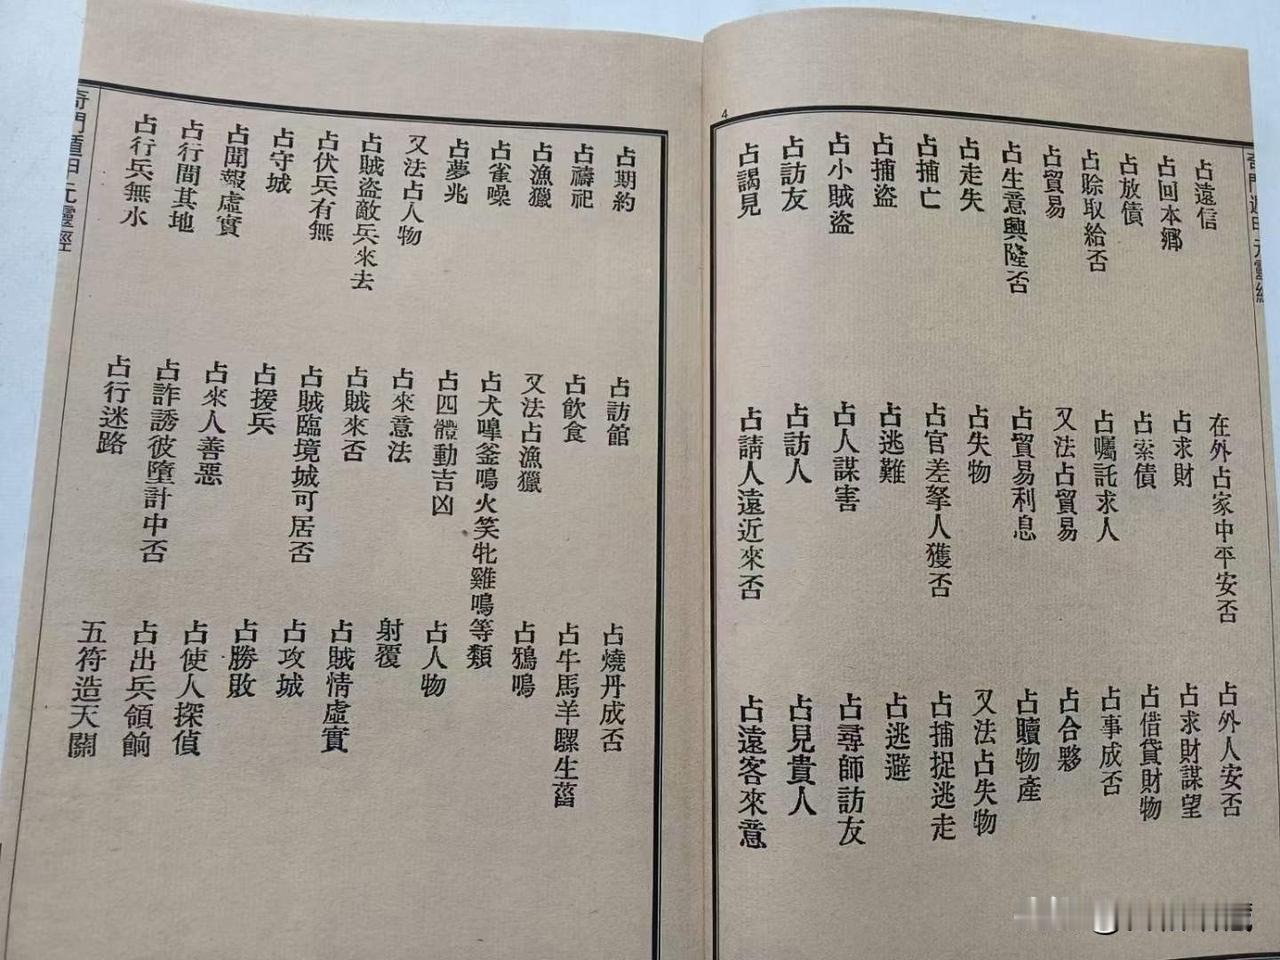 奇門遁甲元靈經
占遠信 在外占家中平安否 占外人安否
占回本鄉 占求財 占求財謀望
占放債 占索債 占借貸財物
占賒取給否 占囑託求人 占事成否
占貿易 又法占貿易 占合夥
占生意興隆否 占貿易利息 占贖物產
占走失 占失物 又法占失物
占捕亡 占官差拏人獲否 占捕捉逃走
占捕盜 占逃難 占逃避
占小賊盜 占人謀害 占尋師訪友
占訪友 占訪人 占見貴人
占謁見 占請人遠近來否 占遠客來意
4
占期約 占訪館 占燒丹成否
占禱祀 占飲食 占牛馬羊騾生畜
占漁獵 又法占漁獵 占鴉鳴
占雀噪 占犬嘷釜鳴火笑牝雞鳴等類
占夢兆 占四體動吉凶 占人物
又法占人物 占來意法 射覆
占賊盜敵兵來去 占賊來否 占賊情虛實
占伏兵有無 占賊臨境城可居否 占攻城
占守城 占援兵 占勝敗
占聞報虛實 占來人善惡 占使人探偵
占行間其地 占詐誘彼墮計中否 占出兵領餉
占行兵無水 占行迷路 五符造天關
奇門遁甲元靈經